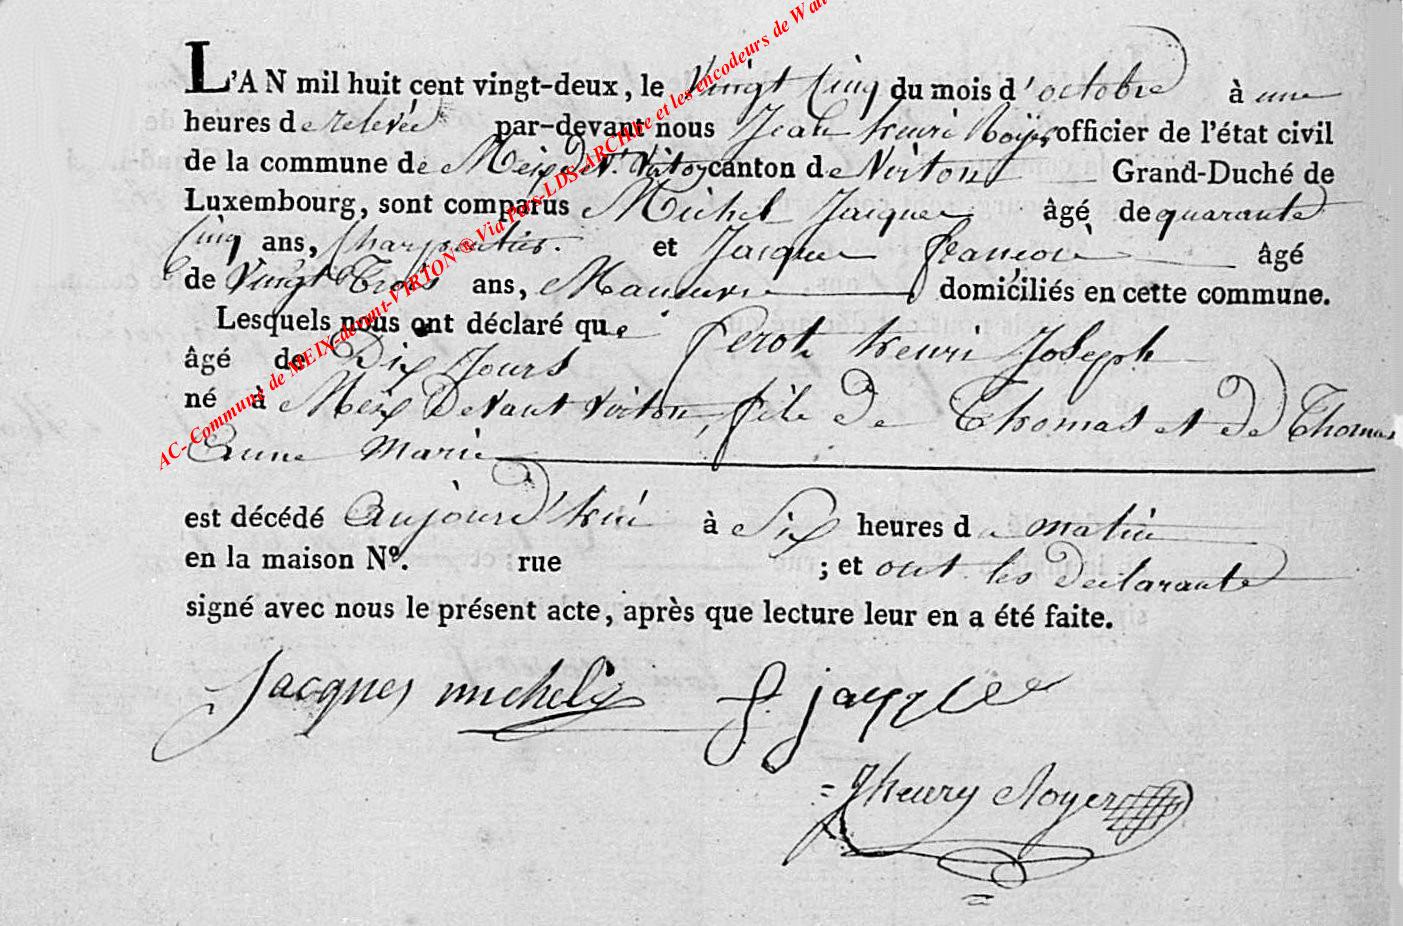 L'AN mil huit cent vingt-deux, le Vingt Cinq du mois d'octobre à une
heures de relevée par-devant nous Jean henri Royer officier de l'état civil
de la commune de Meix dev.t Virton canton de Virton Grand-Duché de
Luxembourg, sont comparus Michel Jacques âgé de quarante
Cinq ans, Charpentier. et Jacques françois âgé
de Vingt Trois ans, Manœuvre domiciliés en cette commune.
Lesquels nous ont déclaré que Perot henri Joseph
âgé de Dix Jours
né à Meix Devant Virton, fils de Thomas et de Thomas
Anne Marie
est décédé aujourd'hui à Six heures du matin
en la maison N°. rue ; et ont les declarants
signé avec nous le présent acte, après que lecture leur en a été faite.
Jacques michel f. jacque
Jhenry Royer
AC- Commune de MEIX-devant-VIRTON ® Via Pers-LDS-ARCHIve et les encodeurs de Wall